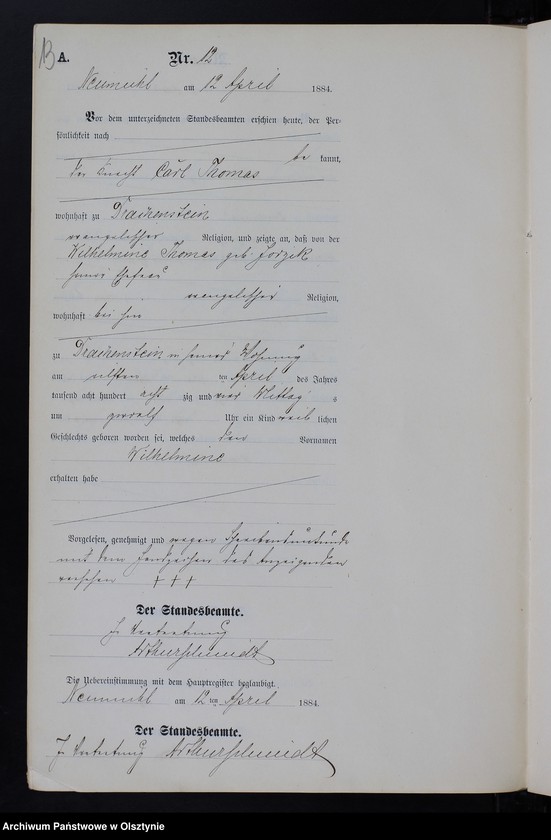 13 A. Nr. 12
Neumühl am 12 April 1884.
Vor dem unterzeichneten Standesbeamten erschien heute, der Per-
sönlichkeit nach
be kannt,
der Knecht Carl Thomas
wohnhaft zu
evangelischer Religion, und zeigte an, daß von der
Wilhelmine Thomas geb.
seiner Ehefrau
evangelischer Religion,
wohnhaft bei ihm
zu in seiner Wohnung
am elften ten April des Jahres
tausend acht hundert acht zig und vier Mittag s
um zwölf Uhr ein Kind weib lichen
Geschlechts geboren worden sei, welches den Vornamen
Wilhelmine
erhalten habe
Vorgelesen, genehmigt und wegen Schreibensunkunde
mit dem Handzeichen des Anzeigenden
versehen + + +
Der Standesbeamte.
In Vertretung
Arthur Schmidt
Die Uebereinstimmung mit dem Hauptregister beglaubigt.
Neumühl am 12 ten April 1884.
Der Standesbeamte.
In Vertretung Arthur Schmidt
Archiwum Państwowe w Olsztynie